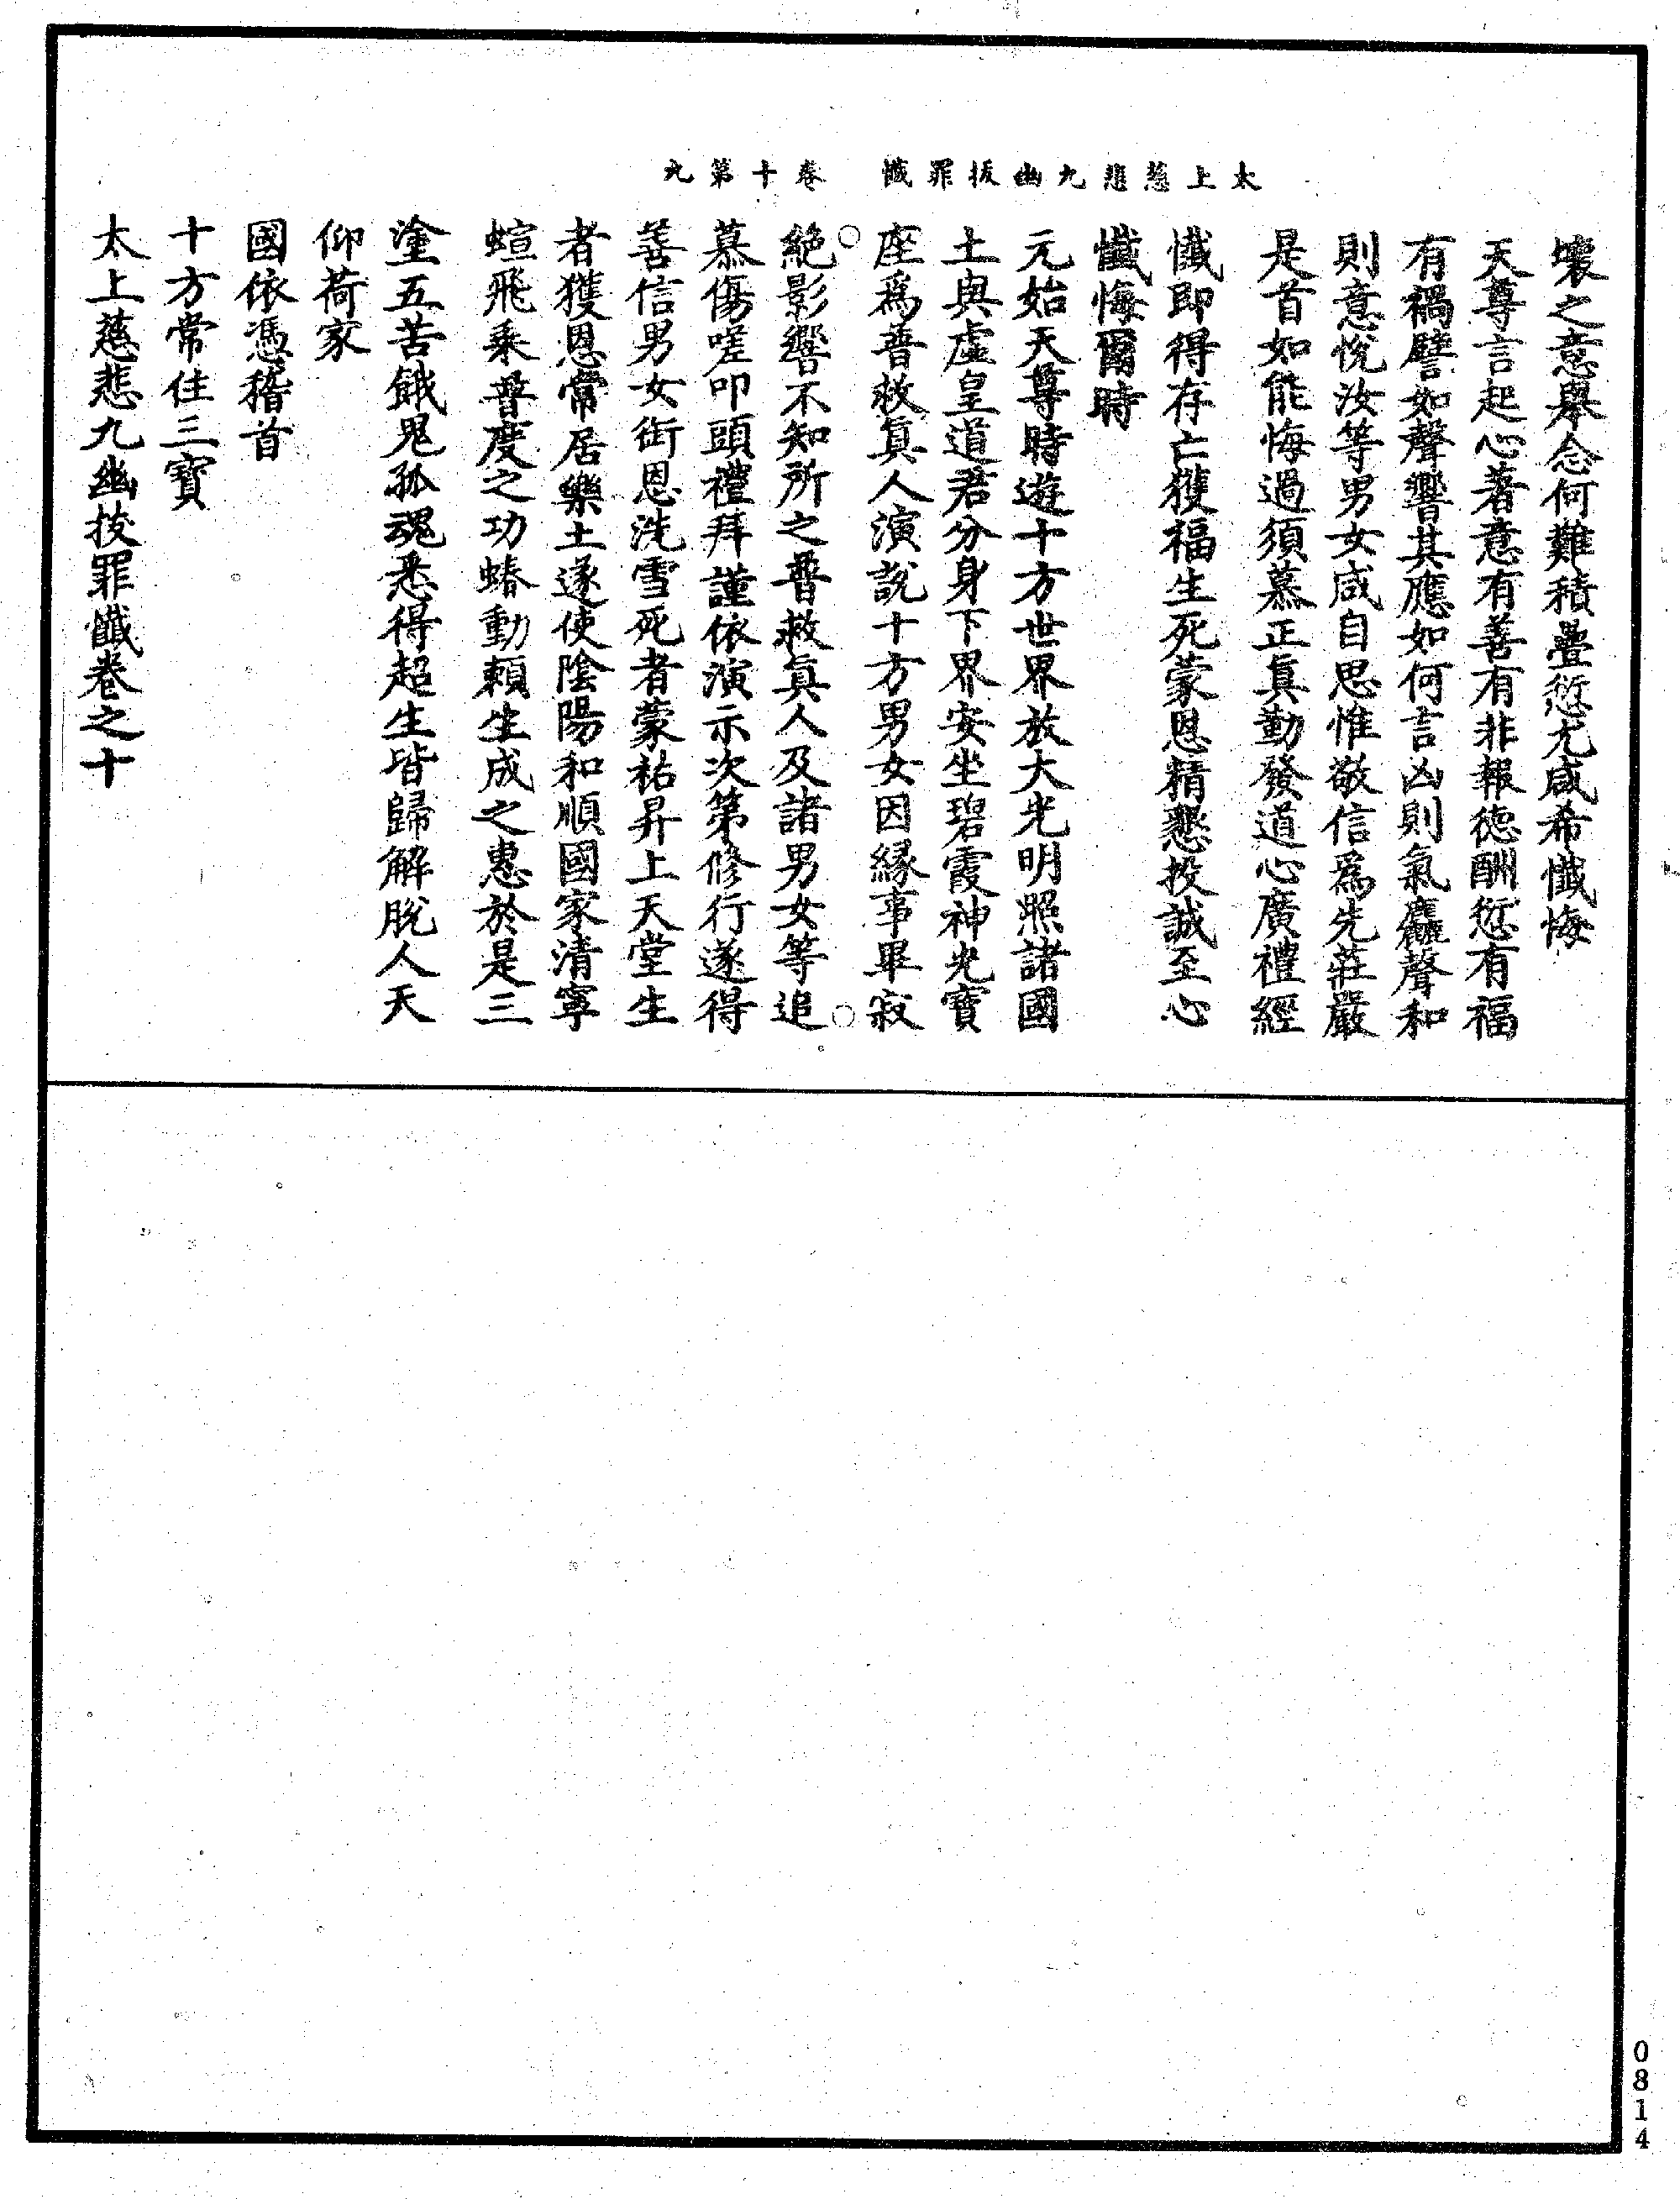 太上慈悲九幽拔罪懺　卷十第九
壞之意舉念何難積疊愆尤咸希懺悔
天尊言起心著意有善有非報德酬愆有福
有禍譬如聲響其應如何言凶則氣麤聲和
則意悅汝等男女咸自思惟敬信爲先莊嚴
是首如能悔過須慕正真勤發道心廣禮經
懺即得存亡獲福生死蒙恩精懇投誠至心
懺悔爾時
元始天尊時遊十方世界放大光明照諸國
土與虛皇道君分身下界安坐碧霞神光寶
座爲普救真人演說十方男女因緣事畢寂
絕影響不知所之普救真人及諸男女等追
慕傷嗟叩頭禮拜謹依演示次第修行遂得
善信男女銜恩洗雪死者蒙祐昇上天堂生
者獲恩常居樂土遂使陰陽和順國家清寧
蝖飛乘普度之功蝽動賴生成之惠於是三
塗五苦餓鬼孤魂悉得超生皆歸解脫人天
仰荷家
國依憑稽首
十方常住三寶
太上慈悲九幽拔罪懺卷之十
0814